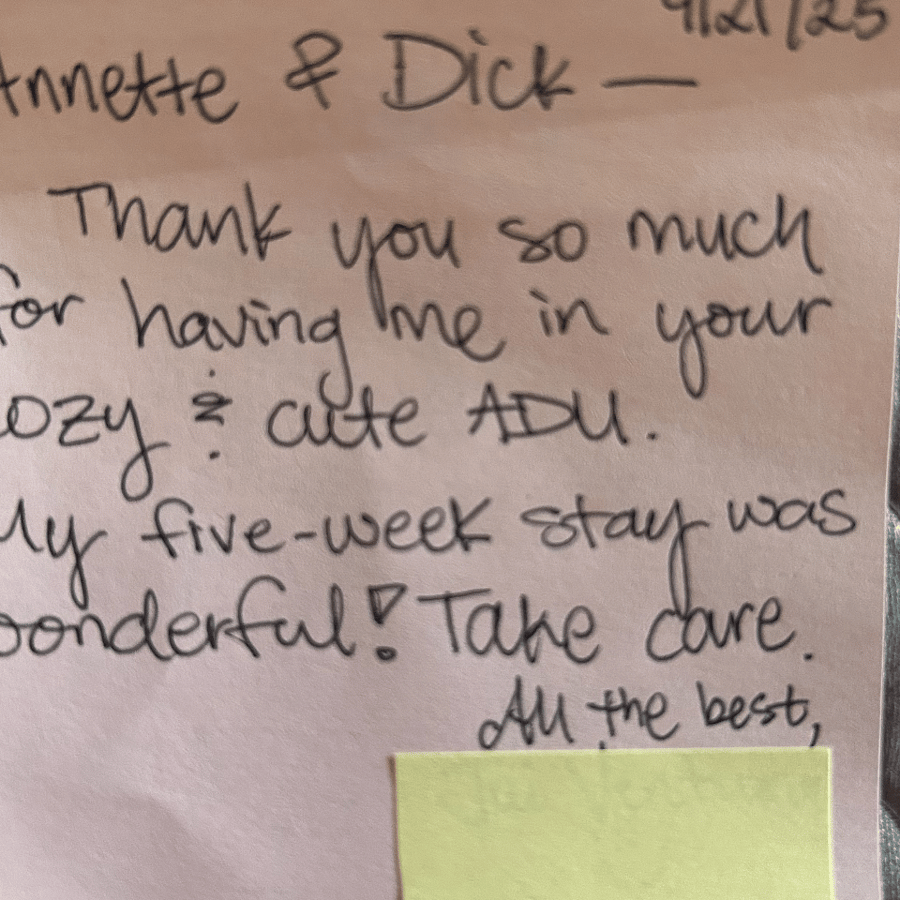 9/21/25
Annette & Dick —
Thank you so much
for having me in your
cozy & cute ADU.
My five-week stay was
wonderful! Take care.
All the best,